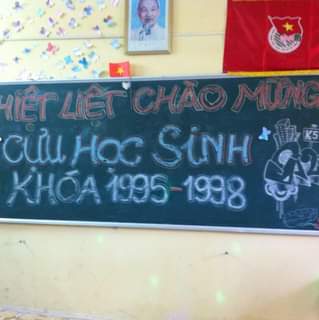 HIỆT LIỆT CHÀO MỪNG
CỰU HỌC SINH
KHÓA 1995-1998
K5